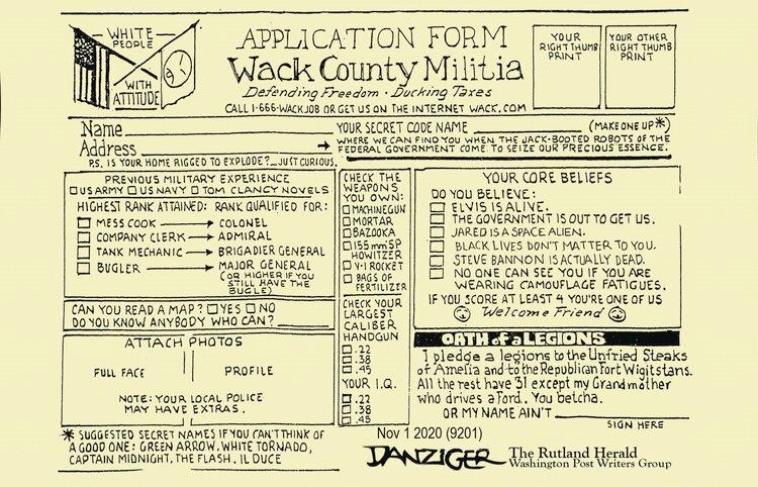 WHITE PEOPLE
WITH ATTITUDE
APPLICATION FORM
Wack County Militia
Defending Freedom · Ducking Taxes
CALL 1-666-WACKJOB OR GET US ON THE INTERNET WACK.COM
YOUR RIGHT THUMB PRINT
YOUR OTHER RIGHT THUMB PRINT
Name
YOUR SECRET CODE NAME (MAKE ONE UP*)
Address
WHERE WE CAN FIND YOU WHEN THE JACK-BOOTED ROBOTS OF THE
FEDERAL GOVERNMENT COME TO SEIZE OUR PRECIOUS ESSENCE.
P.S. IS YOUR HOME RIGGED TO EXPLODE? JUST CURIOUS.
PREVIOUS MILITARY EXPERIENCE
US ARMY US NAVY TOM CLANCY NOVELS
HIGHEST RANK ATTAINED: RANK QUALIFIED FOR:
MESS COOK COLONEL
COMPANY CLERK ADMIRAL
TANK MECHANIC BRIGADIER GENERAL
BUGLER MAJOR GENERAL
(OR HIGHER IF YOU
STILL HAVE THE
BUGLE)
CAN YOU READ A MAP? YES NO
DO YOU KNOW ANYBODY WHO CAN?
ATTACH PHOTOS
FULL FACE PROFILE
NOTE: YOUR LOCAL POLICE
MAY HAVE EXTRAS.
* SUGGESTED SECRET NAMES IF YOU CAN'T THINK OF
A GOOD ONE: GREEN ARROW, WHITE TORNADO,
CAPTAIN MIDNIGHT, THE FLASH, IL DUCE
CHECK THE
WEAPONS
YOU OWN:
MACHINEGUN
MORTAR
BAZOOKA
155 mm SP
HOWITZER
V-1 ROCKET
BAGS OF
FERTILIZER
CHECK YOUR
LARGEST
CALIBER
HANDGUN
.22
.38
.45
YOUR I.Q.
.22
.38
.45
YOUR CORE BELIEFS
DO YOU BELIEVE:
ELVIS IS ALIVE.
THE GOVERNMENT IS OUT TO GET US.
JARED IS A SPACE ALIEN.
BLACK LIVES DON'T MATTER TO YOU.
STEVE BANNON IS ACTUALLY DEAD.
NO ONE CAN SEE YOU IF YOU ARE
WEARING CAMOUFLAGE FATIGUES.
IF YOU SCORE AT LEAST 4 YOU'RE ONE OF US
Welcome Friend
OATH of a LEGIONS
I pledge a legions to the Unfried Steaks
of Amelia and to the Republican Fort Wigitstans.
All the rest have 31 except my Grandmother
who drives a Ford. You betcha.
OR MY NAME AIN'T
SIGN HERE
Nov 1 2020 (9201)
DANZIGER
The Rutland Herald
Washington Post Writers Group